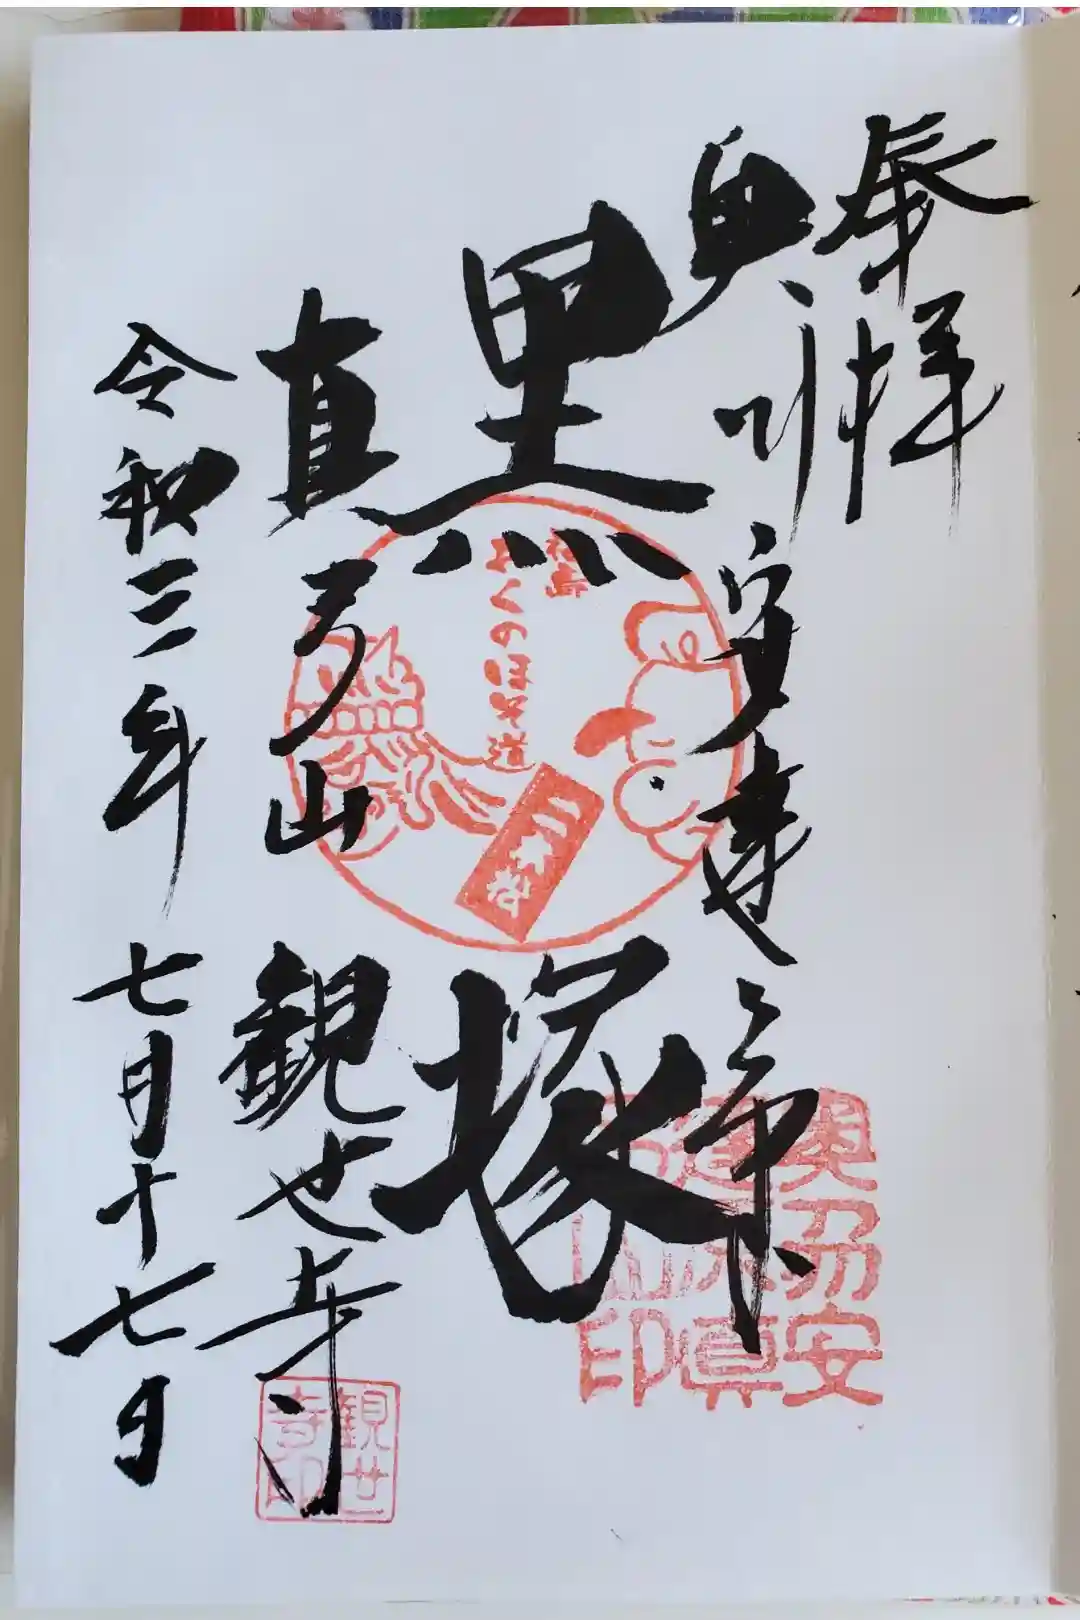 奉拝
奥州安達ヶ原
黒塚
真弓山
観世寺
令和三年七月十七日
福島
おくのほそ道
二本松
奥州安
達原真
弓山印
観世
寺印